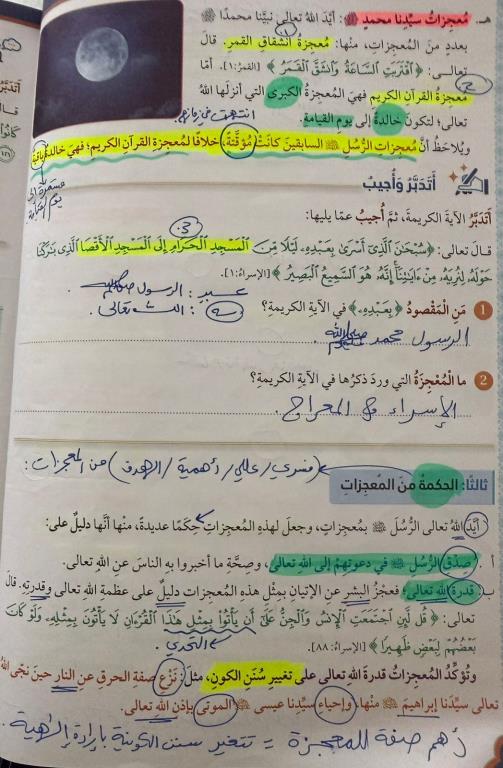 هـ. مُعجِزاتُ سيِّدِنا محمدٍ ﷺ: أيَّدَ اللهُ تعالى نبيَّنا محمدًا ﷺ
بعددٍ منَ المُعجِزاتِ، منْها: مُعجِزةُ انشقاقِ القمرِ. قالَ
تعالى: ﴿اقْتَرَبَتِ السَّاعَةُ وَانْشَقَّ الْقَمَرُ﴾ [القمر: ١]. أمّا
مُعجِزةُ القرآنِ الكريمِ فهيَ المُعجِزةُ الكبرى التي أنزلَها اللهُ
تعالى؛ لتكونَ خالدةً إلى يومِ القيامةِ.
ويُلاحَظُ أنَّ مُعجِزاتِ الرُّسُلِ ﷺ السابقينَ كانَتْ مُؤقَّتةً، خلافًا لمُعجِزةِ القرآنِ الكريمِ؛ فهيَ خالدةٌ باقيةٌ.
مستمرة إلى
يوم القيامة
أتَدَبَّرُ وَأُجيبُ
أَتَدَبَّرُ الآيةَ الكريمةَ، ثمَّ أُجيبُ عمّا يليها:
قالَ تعالى: ﴿سُبْحَٰنَ الَّذِي أَسْرَىٰ بِعَبْدِهِ لَيْلًا مِّنَ الْمَسْجِدِ الْحَرَامِ إِلَى الْمَسْجِدِ الْأَقْصَا الَّذِي بَٰرَكْنَا
حَوْلَهُ لِنُرِيَهُ مِنْ ءَايَٰتِنَا إِنَّهُ هُوَ السَّمِيعُ الْبَصِيرُ﴾ [الإسراء: ١].
عبد: الرسول ﷺ
ـه: الله تعالى.
1 مَنِ المَقْصودُ ﴿بِعَبْدِهِ﴾ في الآيةِ الكريمةِ؟
الرسول محمد ﷺ
2 ما الْمُعْجِزَةُ التي وردَ ذكرُها في الآيةِ الكريمةِ؟
الإسراء و المعراج.
(فسري / عللي / أهمية / الهدف) من المعجزات:
ثالثًا: الحكمةُ منَ المُعجِزاتِ
أيَّدَ اللهُ تعالى الرُّسُلَ ﷺ بمُعجِزاتٍ، وجعلَ لهذِهِ المُعجِزاتِ حِكَمًا عديدةً، منْها أنَّها دليلٌ على:
أ. صدْقِ الرُّسُلِ ﷺ في دعوتِهِمْ إلى اللهِ تعالى، وصِحَّةِ ما أخبروا بهِ الناسَ عنِ اللهِ تعالى.
ب. قدرةِ اللهِ تعالى؛ فعجْزُ البشرِ عنِ الإتيانِ بمِثْلِ هذِهِ المُعجِزاتِ دليلٌ على عظمةِ اللهِ تعالى وقدرتِهِ. قالَ
تعالى: ﴿قُل لَّئِنِ اجْتَمَعَتِ الْإِنسُ وَالْجِنُّ عَلَىٰ أَن يَأْتُوا بِمِثْلِ هَٰذَا الْقُرْءَانِ لَا يَأْتُونَ بِمِثْلِهِ وَلَوْ كَانَ
بَعْضُهُمْ لِبَعْضٍ ظَهِيرًا﴾ [الإسراء: ٨٨].
التحدي.
وتُؤكِّدُ المُعجِزاتُ قدرةَ اللهِ تعالى على تغييرِ سُنَنِ الكونِ، مثلَ: نَزْعِ صفةِ الحرقِ عنِ النارِ حينَ نجّى اللهُ
تعالى سيِّدَنا إبراهيمَ ﷺ منْها، وإحياءِ سيِّدِنا عيسى ﷺ الموتى بإذنِ اللهِ تعالى.
أهم صفة للمعجزة = تتغير سنن الكونية بإرادة إلهية.